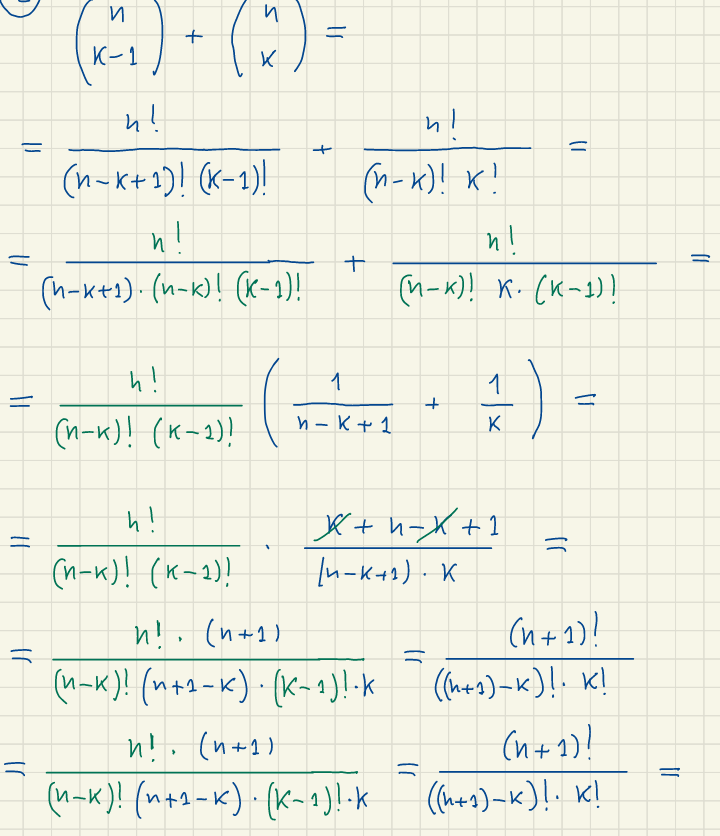 (n K-1) + (n K) =
= n! / (n-K+1)! (K-1)! + n! / (n-K)! K! =
= n! / (n-K+1)·(n-K)! (K-1)! + n! / (n-K)! K·(K-1)! =
= n! / (n-K)! (K-1)! ( 1 / n-K+1 + 1 / K ) =
= n! / (n-K)! (K-1)! · K+n-K+1 / (n-K+1)·K =
= n!·(n+1) / (n-K)! (n+1-K)·(K-1)!·K = (n+1)! / ((n+1)-K)!·K!
= n!·(n+1) / (n-K)! (n+1-K)·(K-1)!·K = (n+1)! / ((n+1)-K)!·K! =